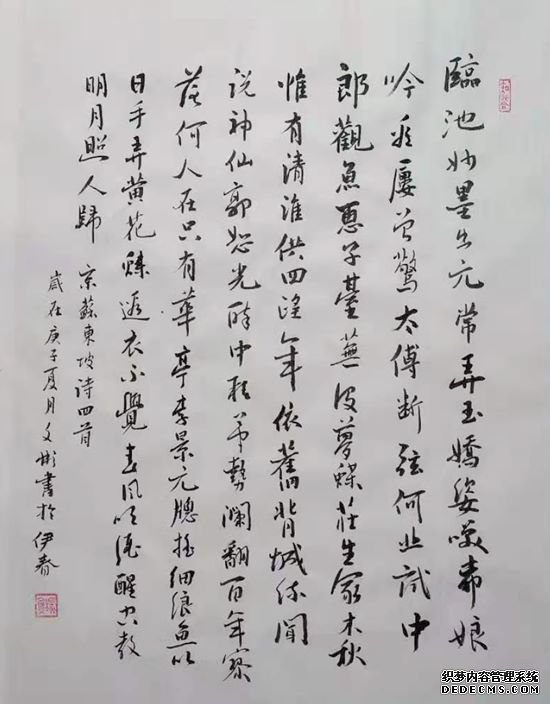 臨池妙墨出元常弄玉嬌姿笑柳娘
吟雪屢曾驚太傅斷弦何止試中
郎觀魚惠子臺蕪没夢蝶莊生冢木秋
惟有清淮供四望年依舊背城流聞
説神仙郭恕先醉中狂筆勢瀾翻百年寥
落何人在只有華亭李景元牕摇細浪魚吹
日手弄黄花蝶透衣不覺春風吹酒醒空教
明月照人歸
宋蘇東坡诗四首
歲在庚子夏月文彬書於伊春
织梦内容管理系统
DEDECMS.COM